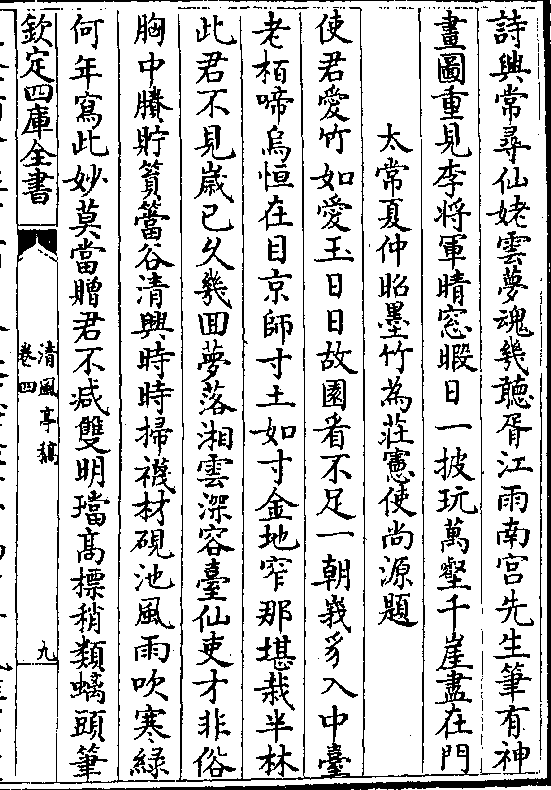 詩興常尋仙姥雲夢魂幾聽胥江雨南宫先生筆有神
畫圖重見李将軍晴窓暇日一披玩萬壑千崖盡在門
太常夏仲昭墨竹為莊憲使尚源題
使君愛竹如愛玉日日故園看不足一朝峩豸入中臺
老栢啼烏恒在目京師寸土如寸金地窄那堪栽半林
此君不見歲已久幾囬夢落湘雲深容臺仙吏才非俗
胸中賸貯篔簹谷清興時時掃襪材硯池風雨吹寒緑
何年寫此妙莫當贈君不减雙明璫髙標稍類螭頭筆
欽定四庫全書
清風亭稿
卷四
九